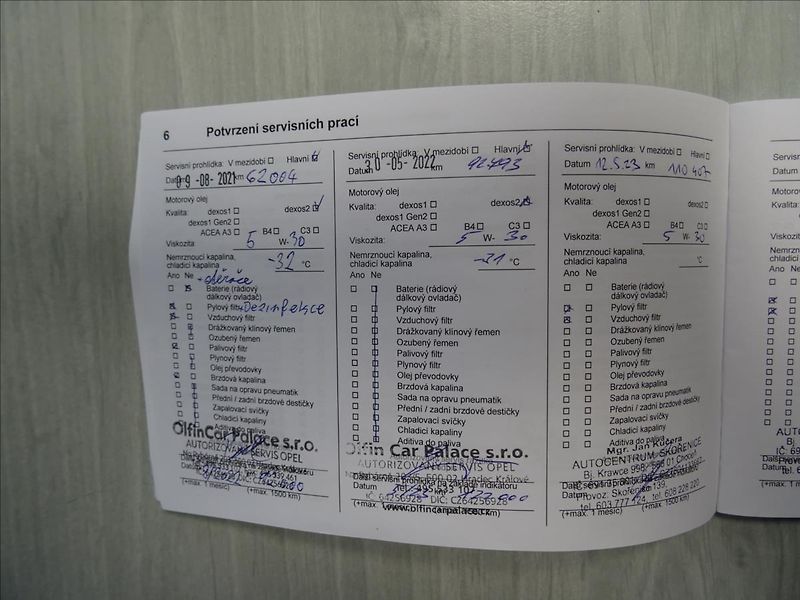 6 Potvrzení servisních prací
Servisní prohlídka: V mezidobí Hlavní
Datum 09-08-2021 km 62004
Motorový olej
Kvalita: dexos1 dexos2
dexos1 Gen2
ACEA A3 B4 C3
Viskozita: 5 W- 30
Nemrznoucí kapalina,
chladicí kapalina -32 °C
Ano Ne
Baterie (rádiový
dálkový ovladač)
Pylový filtr Dezinfekce
Vzduchový filtr
Drážkovaný klínový řemen
Ozubený řemen
Palivový filtr
Plynový filtr
Olej převodovky
Brzdová kapalina
Sada na opravu pneumatik
Přední / zadní brzdové destičky
Zapalovací svíčky
Chladicí kapaliny
Aditiva do paliva
OlfinCar Palace s.r.o.
AUTORIZOVANÝ SERVIS OPEL
(+max. 1 měsíc) (+max. 1500 km)
Servisní prohlídka: V mezidobí Hlavní
Datum 30-05-2022 km 92793
Motorový olej
Kvalita: dexos1 dexos2
dexos1 Gen2
ACEA A3 B4 C3
Viskozita: 5 W- 30
Nemrznoucí kapalina,
chladicí kapalina -21 °C
Ano Ne
Baterie (rádiový
dálkový ovladač)
Pylový filtr
Vzduchový filtr
Drážkovaný klínový řemen
Ozubený řemen
Palivový filtr
Plynový filtr
Olej převodovky
Brzdová kapalina
Sada na opravu pneumatik
Přední / zadní brzdové destičky
Zapalovací svíčky
Chladicí kapaliny
Aditiva do paliva
Olfin Car Palace s.r.o.
AUTORIZOVANÝ SERVIS OPEL
Další servisní prohlídka na základě indikátoru
Datum
IČ: 64256928 DIČ: CZ64256928
(+max. www.olfincarpalace.cz
Servisní prohlídka: V mezidobí Hlavní
Datum 12.5.23 km 110 407
Motorový olej
Kvalita: dexos1 dexos2
dexos1 Gen2
ACEA A3 B4 C3
Viskozita: 5 W- 30
Nemrznoucí kapalina,
chladicí kapalina °C
Ano Ne
Baterie (rádiový
dálkový ovladač)
Pylový filtr
Vzduchový filtr
Drážkovaný klínový řemen
Ozubený řemen
Palivový filtr
Plynový filtr
Olej převodovky
Brzdová kapalina
Sada na opravu pneumatik
Přední / zadní brzdové destičky
Zapalovací svíčky
Chladicí kapaliny
Aditiva do paliva
Mgr. Jan Kučera
AUTOCENTRUM SKOŘENICE
Bj. Krawce 998, 565 01 Choceň
Datum
Provoz: Skořenice 139,
tel. 603 777 474, tel. 608 228 220
(+max. 1 měsíc) (+max. 1500 km)
Servisní
Datum
Motorový
Kvalita:
Viskozita:
Nemrznoucí
chladicí
Ano Ne